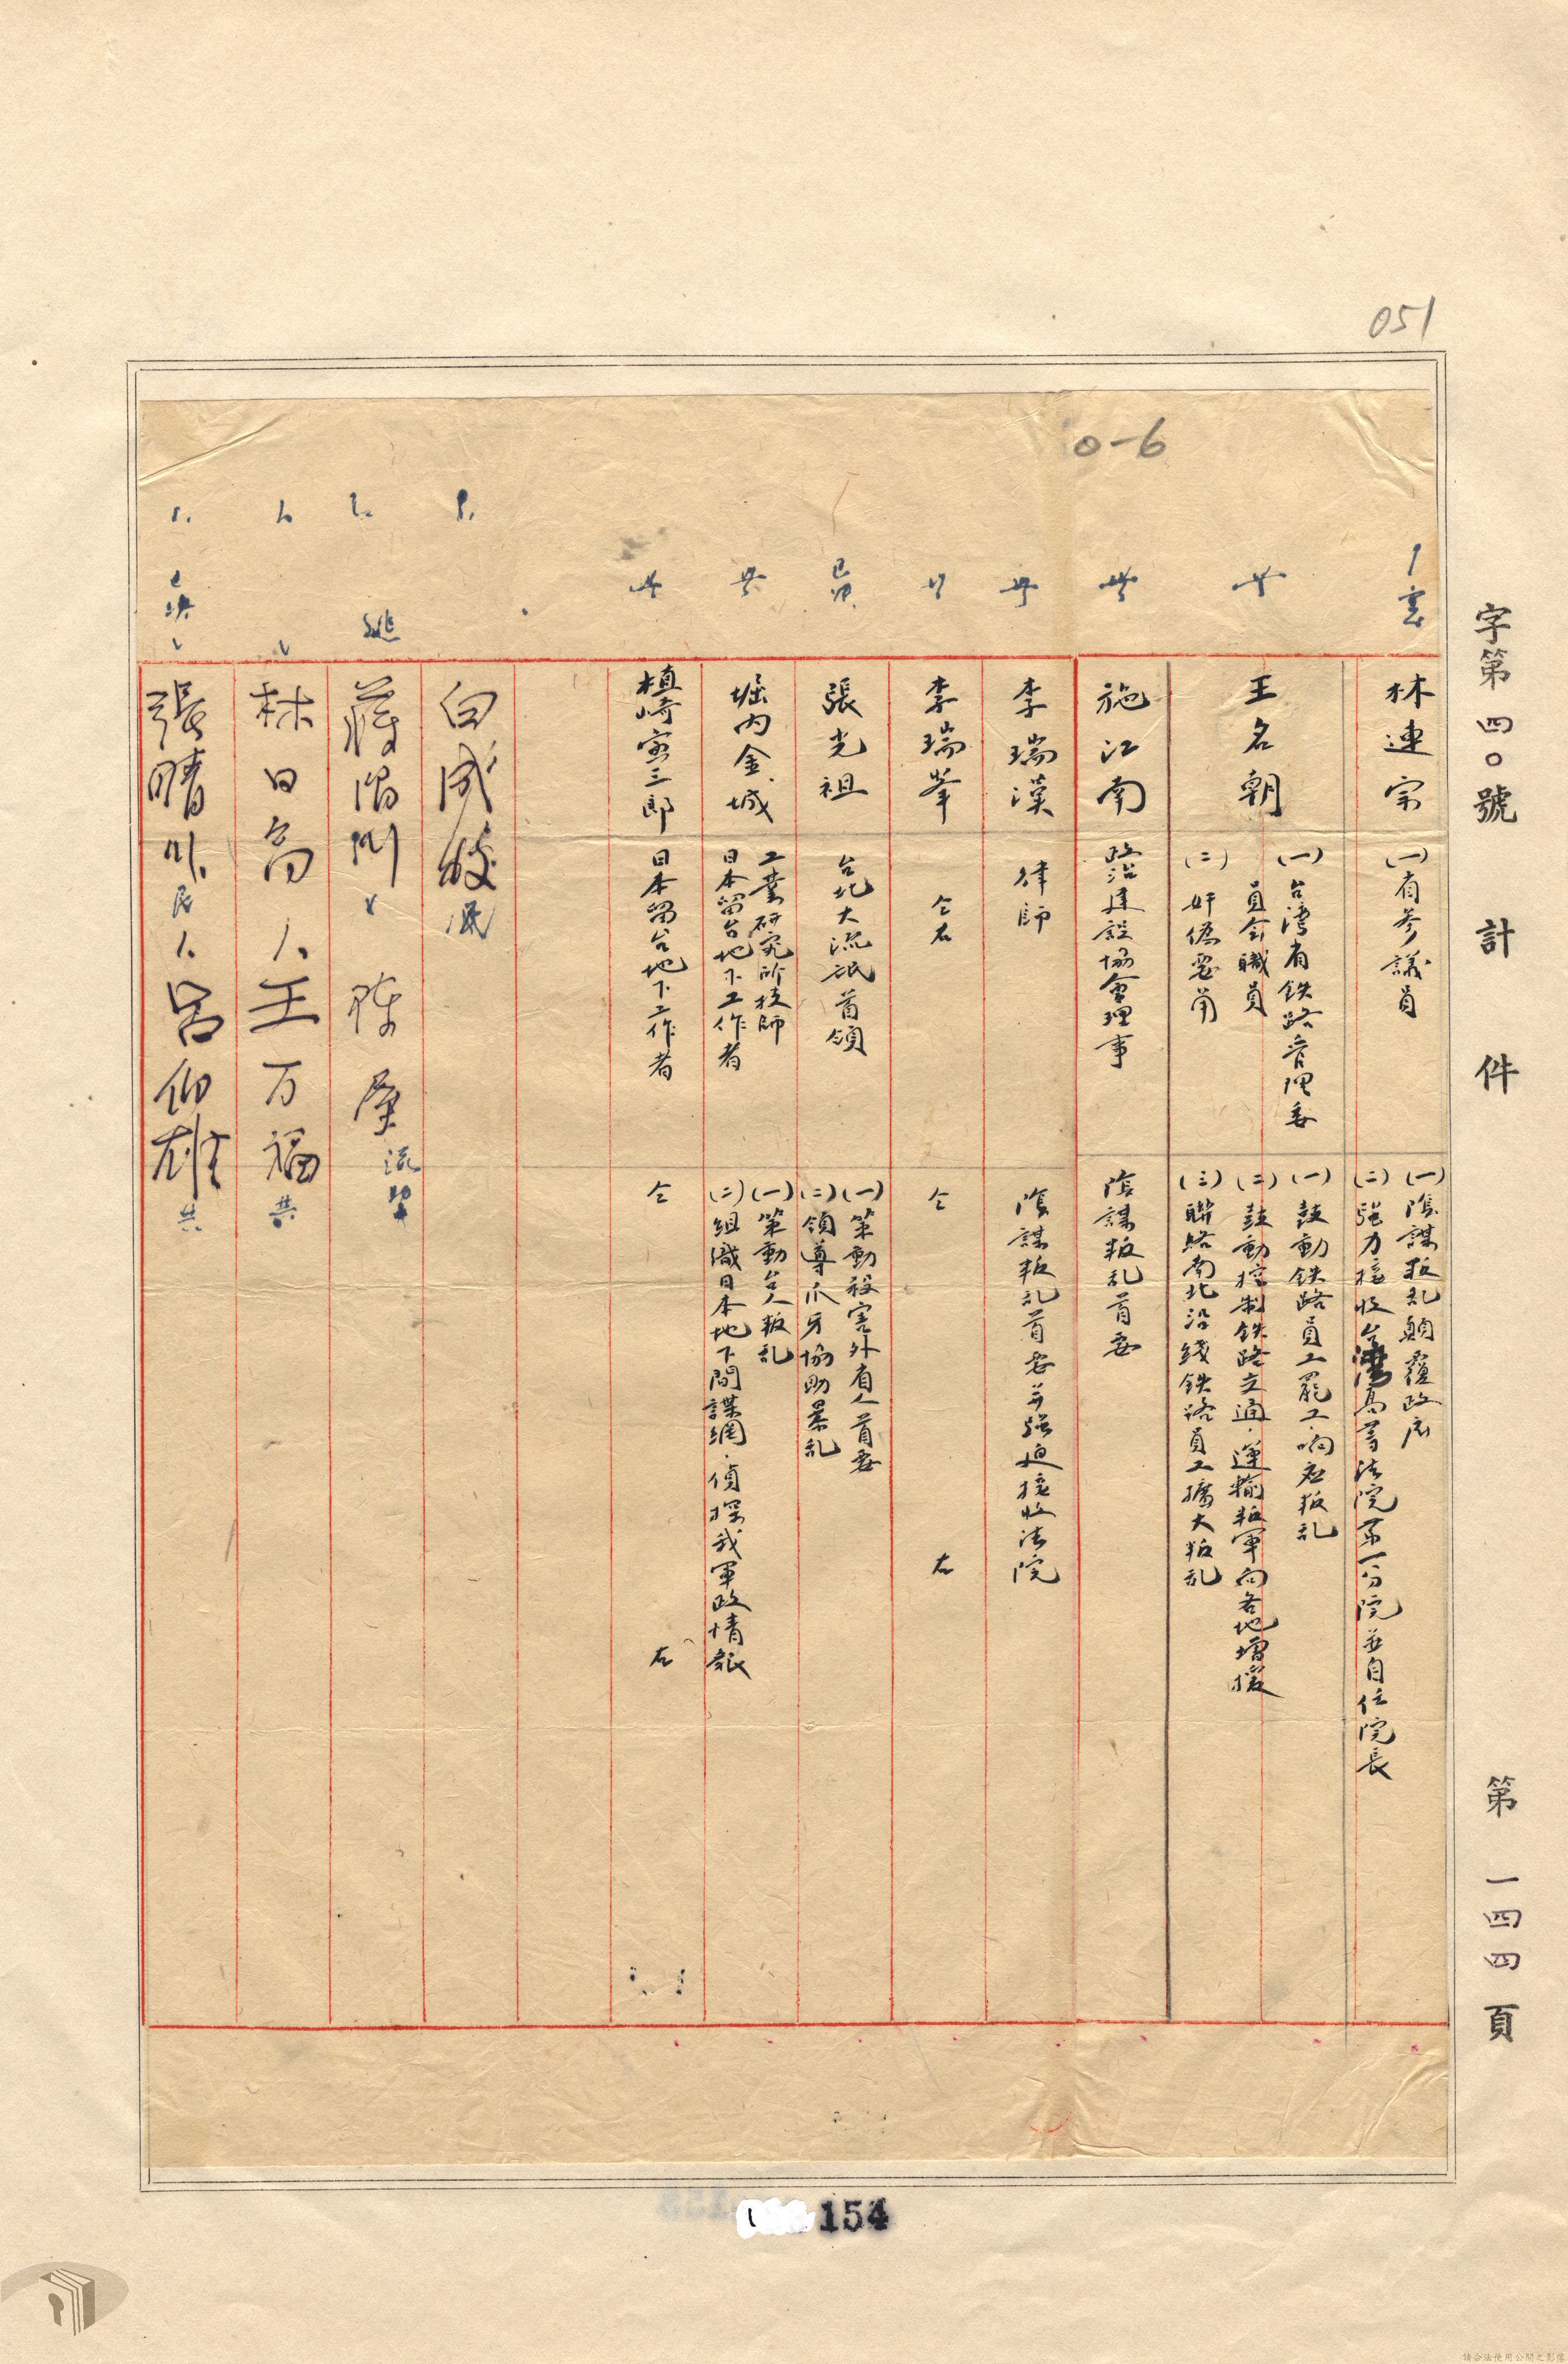 051
0-6
字第四〇號 計 件
第一四四頁
林連宗
(一)省参議員
(一)陰謀叛乱顛覆政府
(二)強力接收台灣高等法院第一分院並自任院長
王名朝
(一)台湾省鉄路管理委
員会職員
(二)奸偽要員
(一)鼓動鉄路員工罷工.响应叛乱
(二)鼓動控制鉄路交通.運輸叛軍向各地增援
(三)聯絡南北沿綫鉄路員工擴大叛乱
施江南
政治建設協會理事
陰謀叛乱首要
李瑞漢
律師
陰謀叛乱首要并強迫接收法院
李瑞峯
仝右
仝右
張光祖
台北大流氓首領
(一)策動殺害外省人首要
(二)領導爪牙協助暴乱
堀内金城
工業研究所技師
日本留台地下工作者
(一)策動台人叛乱
(二)組織日本地下間諜網.偵探我軍政情報
植崎寅三郎
日本留台地下工作者
仝右
白成枝
蔣渭川
陳屋
流
林日高
王万福
共
張晴川
民
呂伯雄
共
154
請合法使用公開之影像